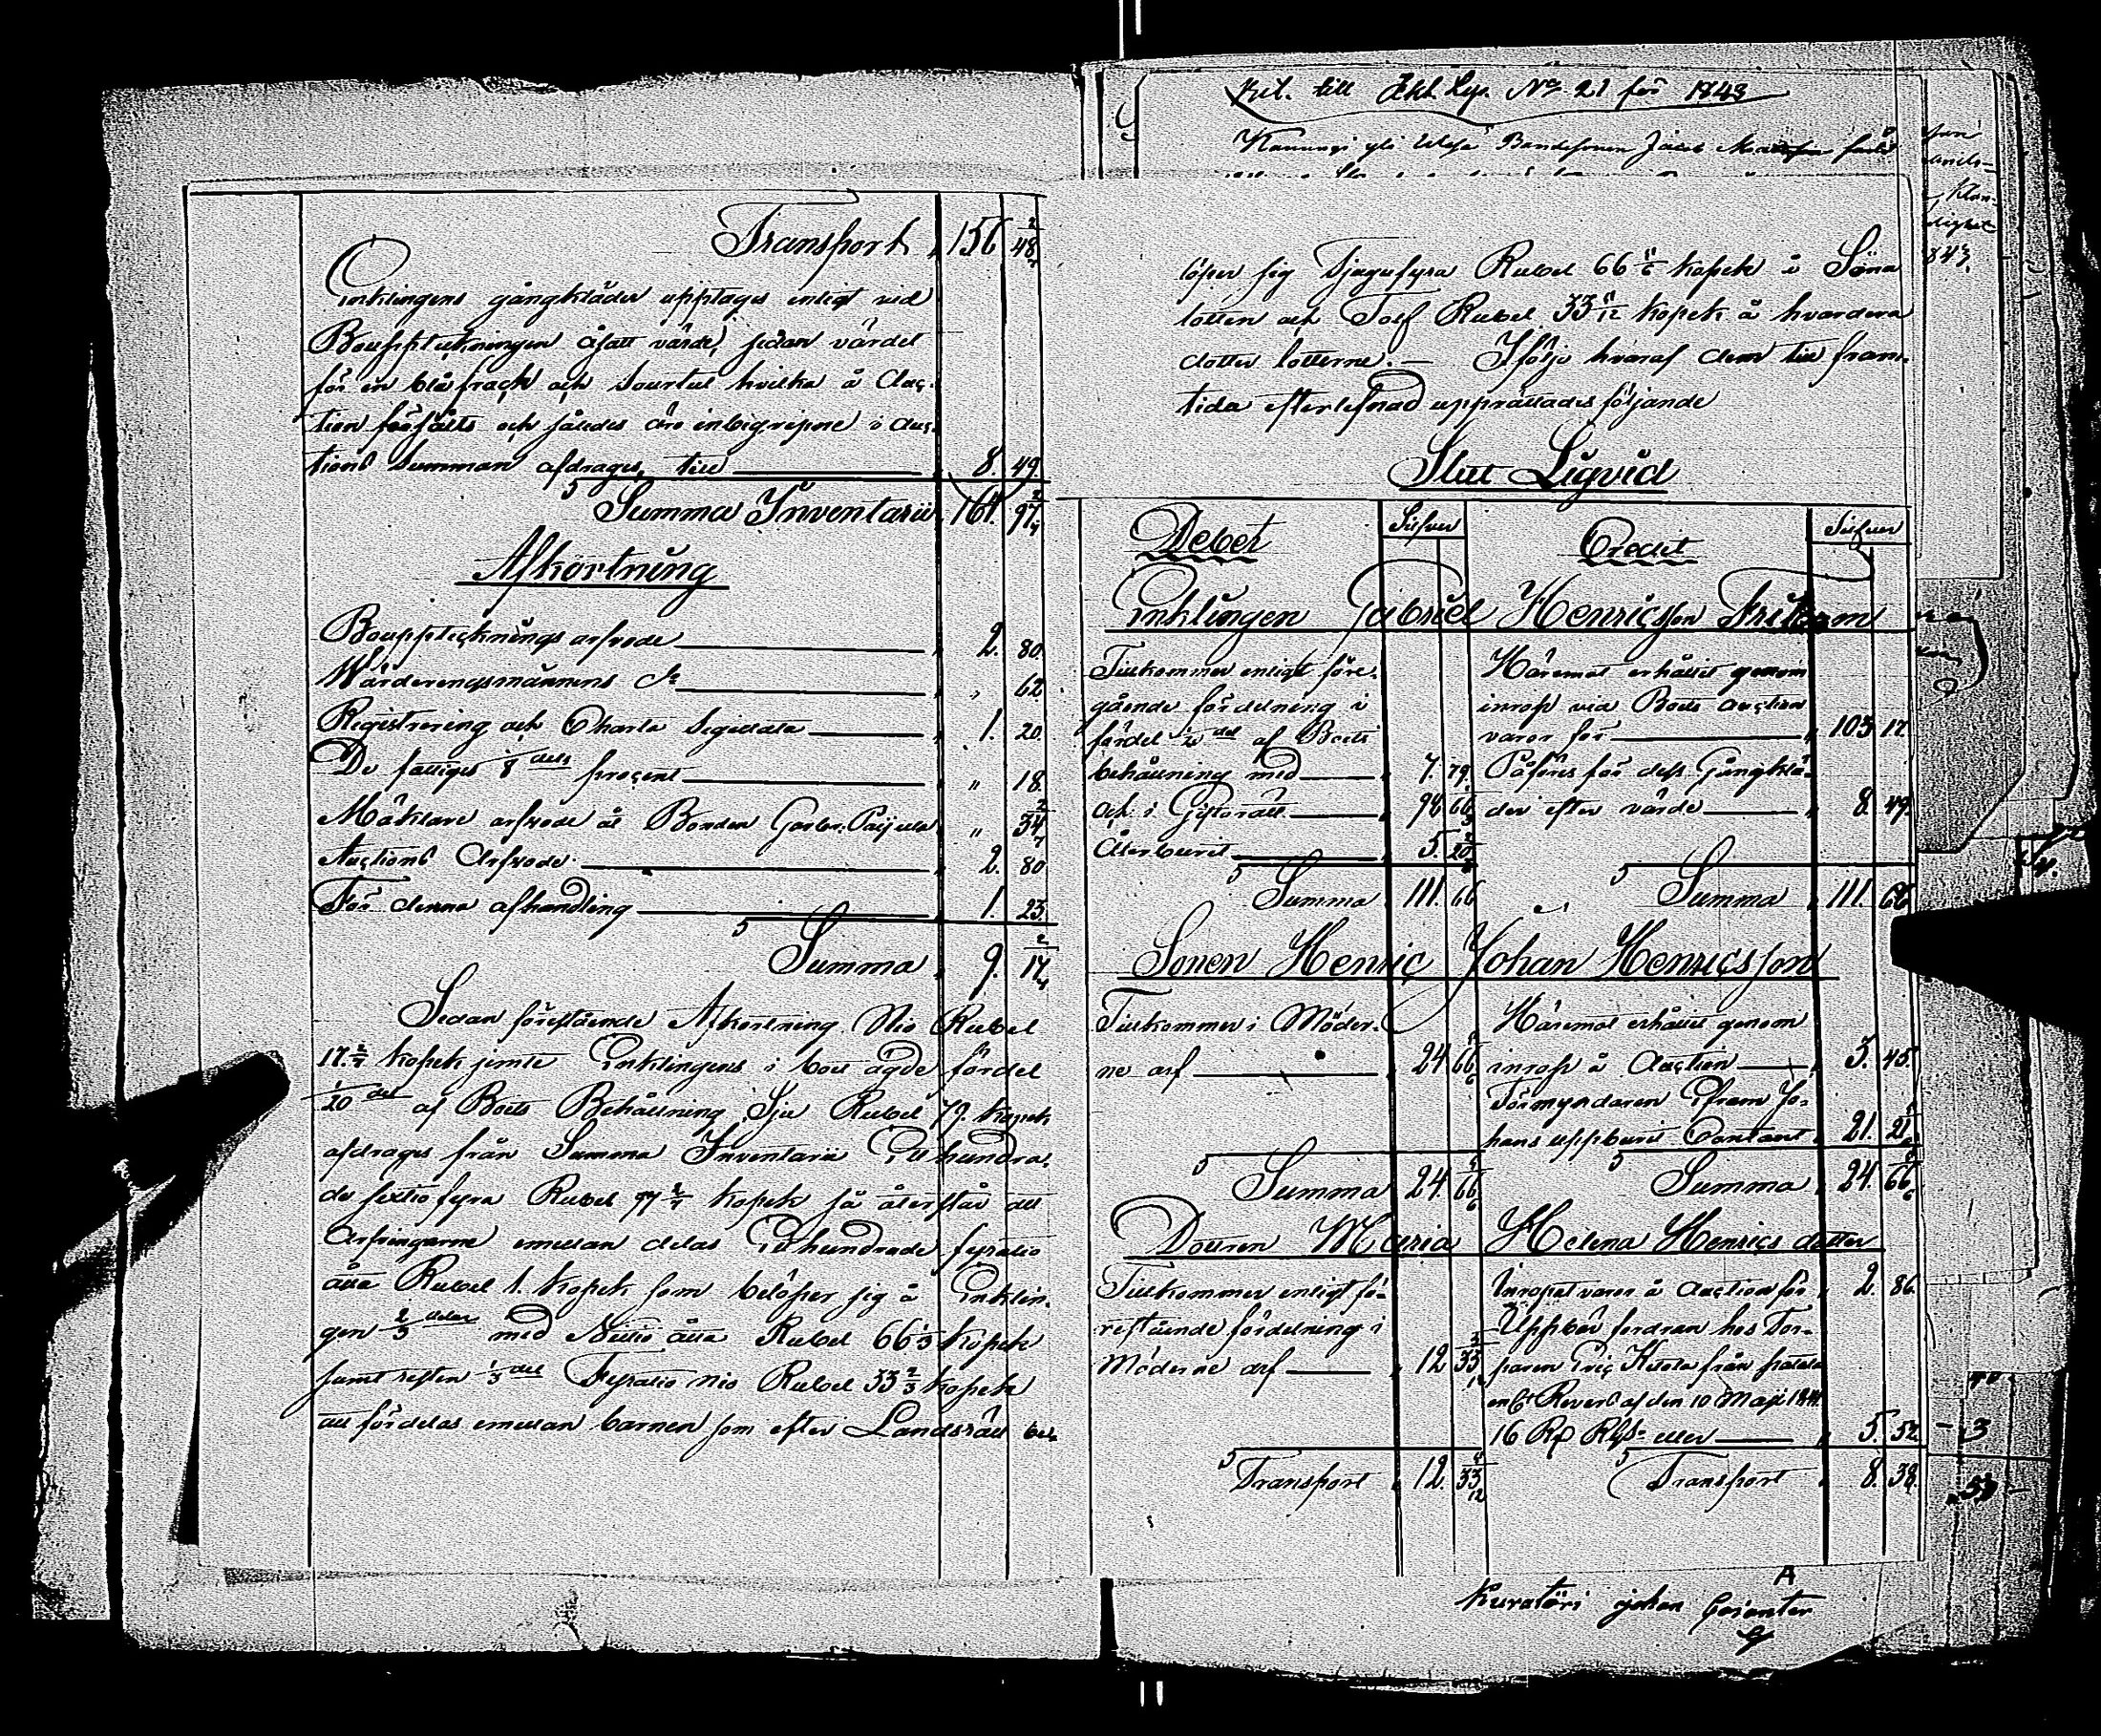 Transport 156 48 2/7
Enklingens gångkläder upptages enligt vid
Bouppteckningen åsatt värde, sedan värdet
för en blå frack och Sourtut hvilka å Auc-
tion försålts och således äro inbegripne i Auc-
tions Summan afdrages, till 8. 49
Summa Inventarii 164. 97 2/7
Afkortning
Boupptecknings arfvode 2. 80.
Wärderingsmännens do " 62
Registrering och Charta Sigillata 1. 20.
De fattiges 8dels procent " 18.
Mäklare arfvode åt Bonden " 34 2/7
Auctions Arfvode 2. 80
För denna afhandling 1. 23.
Summa 9. 17 2/7
Sedan förestående Afkortning Nio Rubel
17 2/7 kopek jemte Enklingens i boet ägde fördel
1/20 del af Boets Behållning Sju Rubel 79. kopek
afdrages från Summa Inventarii Etthundra-
de sextiofyra Rubel 97 2/7 kopek så återstår att
Arfvingarne emellan delas Etthundrade fyratio
åtta Rubel 1. kopek som belöper sig å Enklin-
gen 2/3 delar med Nittio åtta Rubel 66 1/3 kopek
samt resten 1/3 del Fyratio nio Rubel 33 2/3 kopek
att fördelas emellan barnen som efter Landsrätt be-
Kil. till Nº 21 för 1743
Bondesonen Jacob
löper sig Tjugufyra Rubel 66 5/6 kopek å Söna
lotten och Tolf Rubel 33 5/12 kopek å hvardera
dotter lotterne. — I följe hvaraf dem till fram-
tida efterlefnad upprättades följande
Slut Liqvid
Debet Silfver Credit Silfver
Enklingen Gabriel Henricsson
Tillkommer enligt före-
gående fördelning i
fördel 1/20 del af Boets
behållning med 7. 79.
och i Giftorätt 98 66 1/3
Återburit 5. 20 2/3
Summa 111. 66
Häremot erhållit genom
inrop vid Boets Auction
varor för 103 17.
Påföres för dess Gångklä-
der efter värde 8. 49.
Summa 111. 66
Sonen Henric Johan Henricsson
Tillkommer i Möder-
ne arf 24 66 5/6
Summa 24. 66 5/6
Häremot erhållit genom
inrop å Auction 3. 45.
Förmyndaren Efram Jo-
hans uppburit Contant 21. 21 5/6
Summa 24. 66 5/6
Dottren Maria Helena Henrics dotter
Tillkommer enligt fö-
restående fördelning i
Möderne arf 12 33 5/12
Transport 12. 33 5/12
Inropat varor å Auction för 2. 86.
Uppbär fordran hos Tor-
paren Eric från
enligt Revers af den 10 Maji
16 Rp Rgs eller 5. 52
Transport 8. 38.
Kuratöri johan